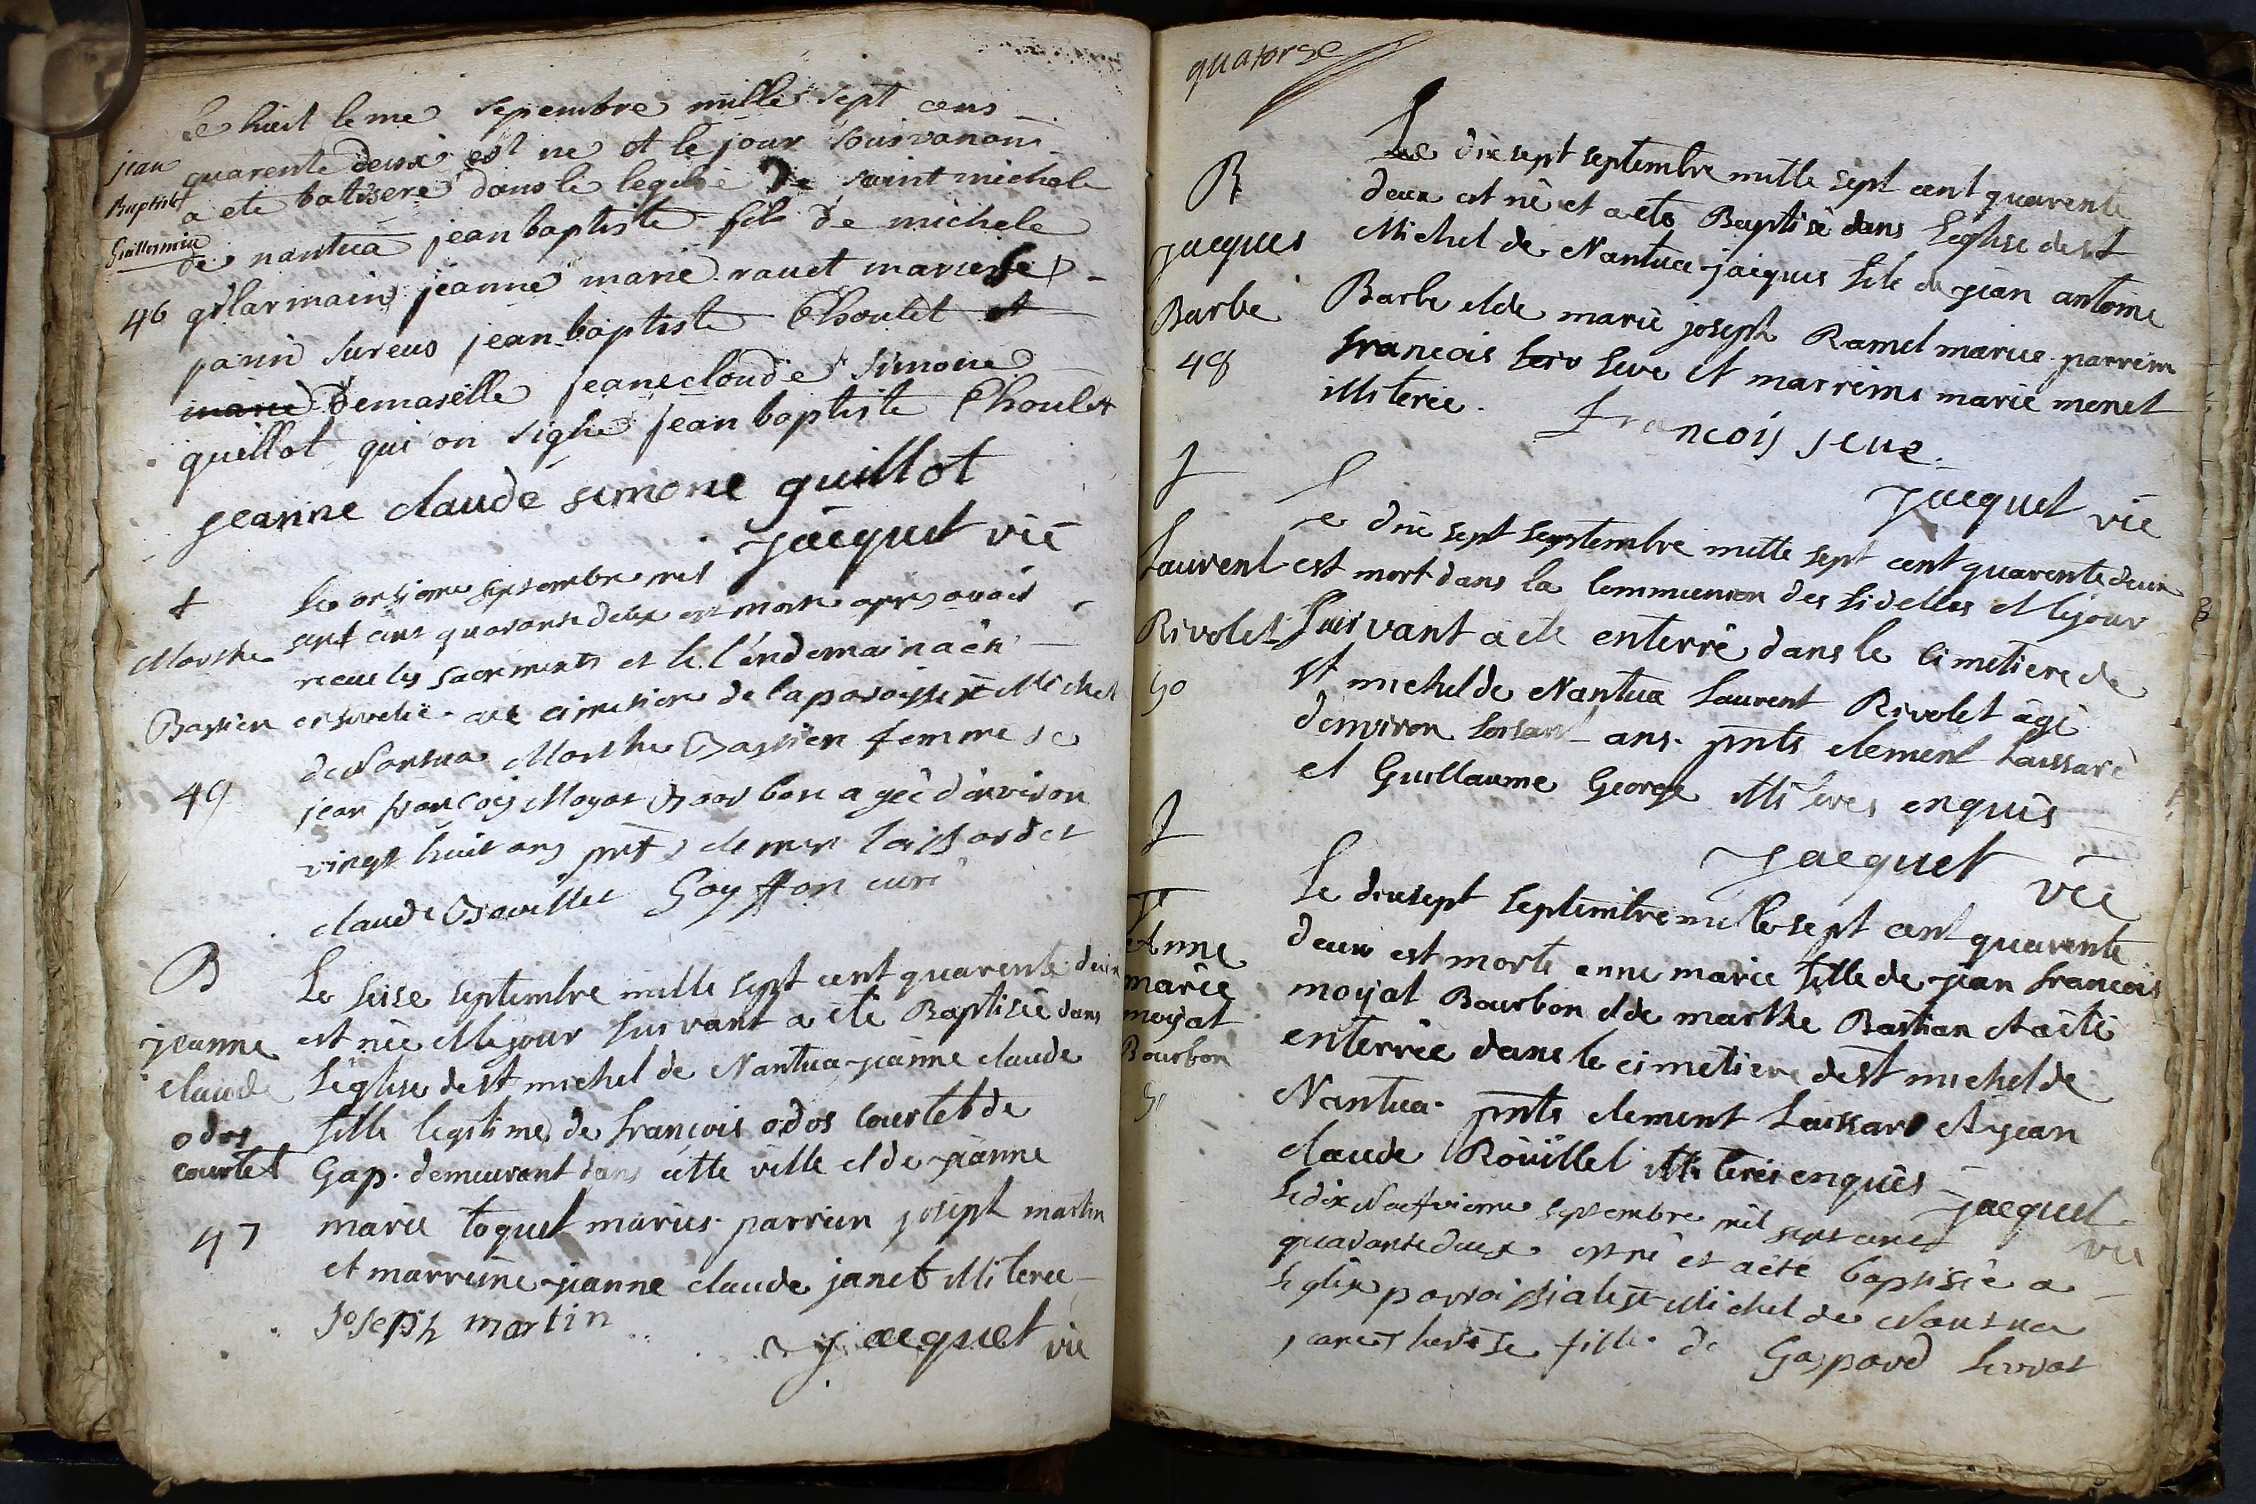 le huit leme sepembre mille sept cens
jean
quarente deux est ne et le jour souivanant
Baptiste
a ete batisere dans le leglise de saint michele
Guillermin
de nantua jean baptiste fils de michele
46
jeanne marie ravet maries
parin sureus jean baptiste Choulet et
marie demaselle jeane cloude simone
quillot qui on signe jean baptiste Choulet
jeanne claude simone quillot
Jacquet vic
†
Le onsieme septembre mil
Marthe
sept cent quarante deux est morte apres avoir
recue les sacrements et le l'endemain a été
Bastien
ensevelie au cimetiere de la paroisse st Michel
de Nantua Marthe Bastien femme de
49
jean françois Moyat Bourbon agée d'environ
vingt huit ans pnts clement laissard et
claude Rouillet Goyffon curé
B
Le seise septembre mille sept cent quarente deux
jeanne
est née et le jour suivant a été Baptisée dans
claude
Leglise de st michel de Nantua jeanne claude
odos
fille legitime de françois odos courtet de
courtet
Gap. demeurant dans cette ville et de jeanne
47
marie toquet maries. parrien joseph martin
et marreine jeanne claude janet illiteree
Joseph martin
Jacquet vic
quatorse
Le dix sept septembre mille sept cent quarente
B
deux est né et a ete Baptisé dans Leglise de st
jacques
Michel de Nantua jacques fils de jean antoine
Barbe
Barbe et de marie joseph Ramel maries parrein
48
françois seve et marreine marie monet
illiteree.
francois seue
Jacquet vic
†
Le dix sept septembre mille sept cent quarente deux
Laurent
est mort dans la Communion des fidelles et le jour
Rivolet
suivant a ete enterré dans le cimetiere de
50
st michel de Nantua Laurent Rivolet agé
d'environ soisant ans. pnts clement Laissard
et Guillaume George illiteres enquis
Jacquet vic
†
Le dix sept septembre mille sept cent quarente
Anne
deux est morte anne marie fille de jean francois
marie
moyat
moyat Bourbon et de marthe Bastian et a été
Bourbon
enterrée dans le cimetiere de st michel de
51
Nantua. pnts clement Laissard et jean
claude Roüillet illiterés enquis
Jacquet vic
Le dix Neuffvieme septembre mil sept cent
quarante deux est né et a été baptisée a
l'eglise parroissiale st Michel de Nantua
jeane therese fille de Gaspard Serrat